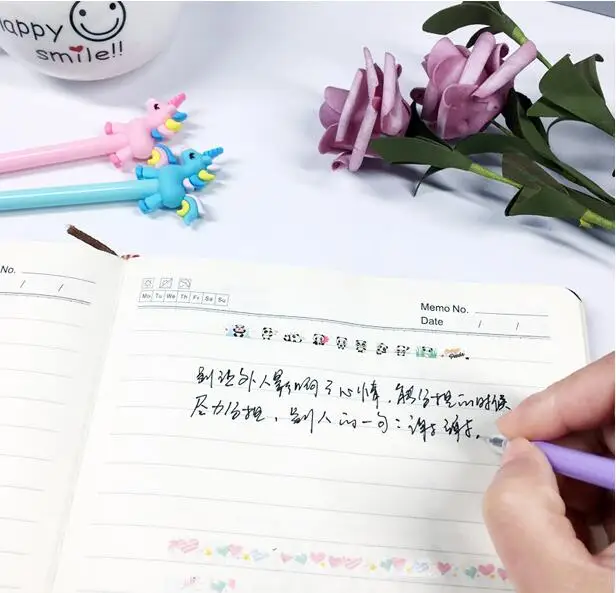 Happy
smile!!
No.
/ /
Mo Tu We Th Fr Sa Su
Memo No.
Date / /
别让外人影响了心情,能分担的时候
尽力分担,别人的一句:谢谢,